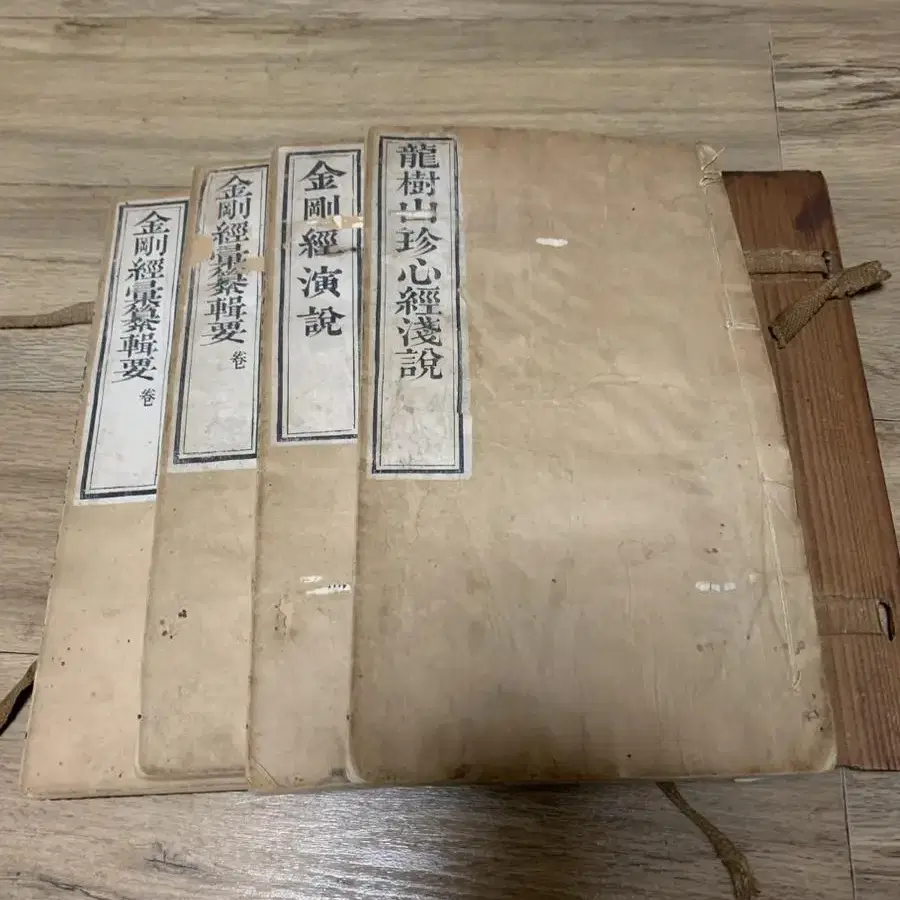 龍樹山珍心經淺說
金剛經演說
金剛經彙纂輯要 卷
金剛經彙纂輯要 卷